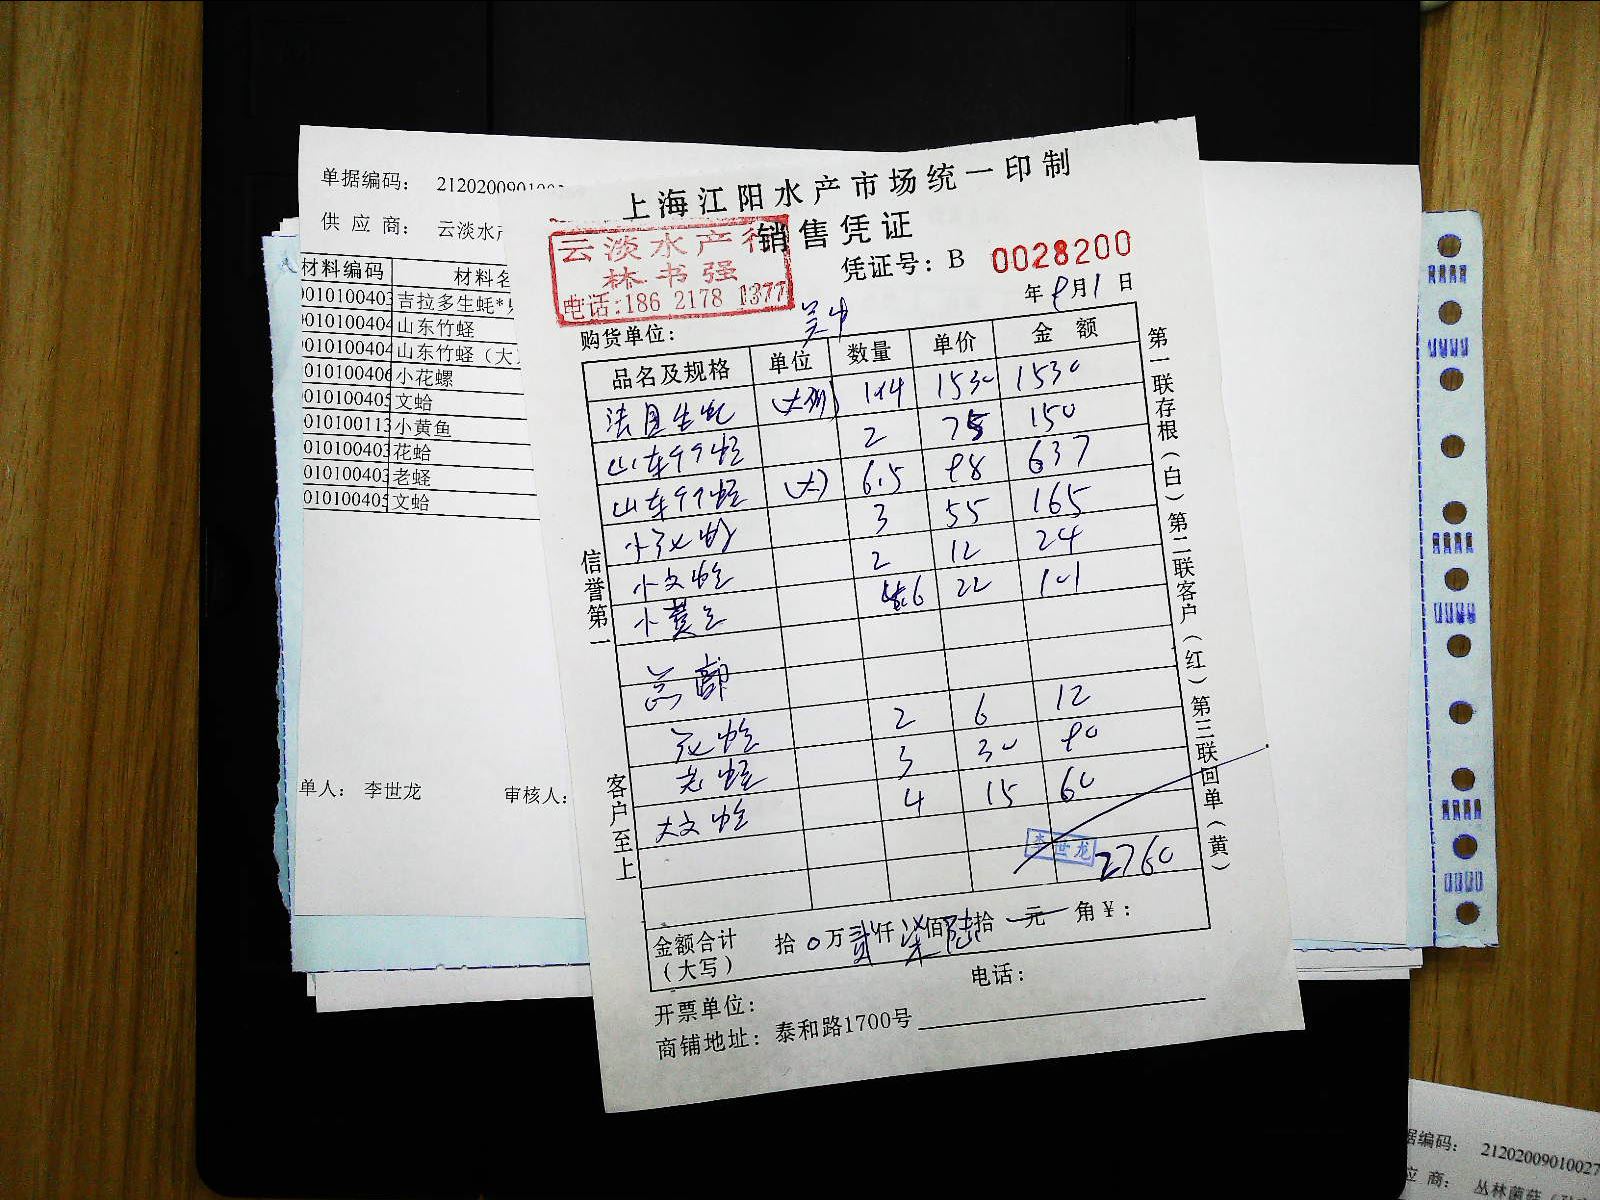 单据编码： 2120200901
供 应 商： 云淡水产
材料编码 材料名
010100403 吉拉多生蚝*
010100404 山东竹蛏
010100404 山东竹蛏（大
010100406 小花螺
010100405 文蛤
010100113 小黄鱼
010100403 花蛤
010100403 老蛏
010100405 文蛤
单人： 李世龙 审核人：
上海江阳水产市场统一印制
销售凭证
云淡水产行
林书强
电话:186 2178 1377
凭证号：B 0028200
年 9月1日
购货单位：
品名及规格 单位 数量 单价 金额
1530 1530
2 75 150
山东竹蛏 (大) 6.5 98 637
3 55 165
小文蛤 2 12 24
22 101
总部
花蛤 2 6 12
老蛏 3 30 90
大文蛤 4 15 60
李世龙
2760
金额合计（大写） 拾0万贰仟柒佰陆拾 元 角￥：
开票单位： 电话：
商铺地址：泰和路1700号
信誉第一
客户至上
第一联存根（白）第二联客户（红）第三联回单（黄）
据编码： 21202009010027
应 商： 丛林菌菇